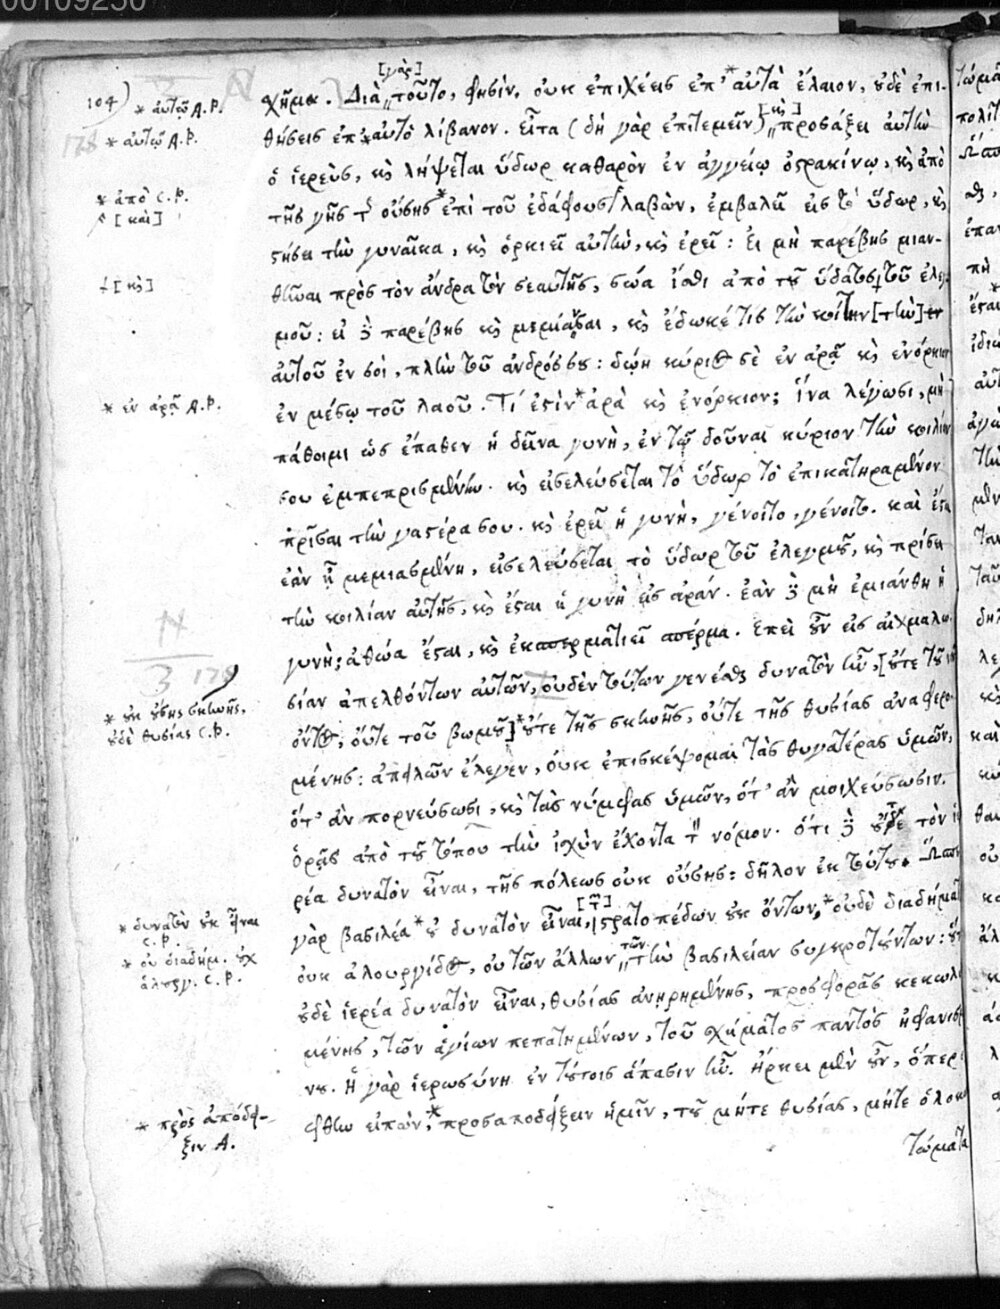 00109250
[γὰρ]
104) * αὐτῷ A.P.
χῆμα. Διὰ τοῦτο, φησὶν, οὐκ ἐπιχέεις ἐπ' * αὐτὰ ἔλαιον, οὐδὲ ἐπι-
* αὐτῷ A.P.
θήσεις ἐπ' * αὐτὸ λίβανον. εἶτα (δὴ γὰρ ἐπιτεμεῖν) [καὶ] προσάξει αὐτὴν
ὁ ἱερεὺς, καὶ λήψεται ὕδωρ καθαρὸν ἐν ἀγγείῳ ὀστρακίνῳ, καὶ ἀπὸ
* ἀπὸ C.P.
[καὶ]
τῆς γῆς τῆς οὔσης * ἐπὶ τοῦ ἐδάφους λαβὼν, ἐμβαλεῖ εἰς τὸ ὕδωρ, καὶ
στήσει τὴν γυναῖκα, καὶ ὁρκιεῖ αὐτὴν, καὶ ἐρεῖ: Εἰ μὴ παρέβης μιαν-
[καὶ]
θῆναι πρὸς τὸν ἄνδρα τὸν σεαυτῆς, σώα ἴσθι ἀπὸ τοῦ ὕδατος τοῦ ἐλεγ
μοῦ: εἰ δὲ παρέβης καὶ μεμίανσαι, καὶ ἔδωκέ τις τὴν κοίτην [τὴν]
αὐτοῦ ἐν σοὶ, πλὴν τοῦ ἀνδρός σου: δῴη κύριος σὲ ἐν ἀρᾷ καὶ ἐνόρκιον
* ἐν ἀρᾷ A.P.
ἐν μέσῳ τοῦ λαοῦ. Τί ἐστὶν * ἀρὰ καὶ ἐνόρκιον; ἵνα λέγωσι, μὴ
πάθοιμι ὡς ἔπαθεν ἡ δεῖνα γυνὴ, ἐν τῷ δοῦναι κύριον τὴν κοιλίαν
σου ἐμπεπρισμένην. καὶ εἰσελεύσεται τὸ ὕδωρ τὸ ἐπικατηραμένον
πρῖσαι τὴν γαστέρα σου. καὶ ἐρεῖ ἡ γυνὴ, γένοιτο, γένοιτο. καὶ ἔσται
ἐὰν ᾖ μεμιασμένη, εἰσελεύσεται τὸ ὕδωρ τοῦ ἐλεγμοῦ, καὶ πρίσει
τὴν κοιλίαν αὐτῆς, καὶ ἔσται ἡ γυνὴ εἰς ἀράν. ἐὰν δὲ μὴ ἐμιάνθη ἡ
γυνὴ; ἀθώα ἔσται, καὶ ἐκσπερματιεῖ σπέρμα. Ἐπεὶ οὖν εἰς αἰχμαλω
σίαν ἀπελθόντων αὐτῶν, οὐδὲν τούτων γενέσθαι δυνατὸν ἦν, [οὔτε τοῦ
* οὐκ οὔσης σκηνῆς,
οὐδὲ θυσίας C.P.
ὄντος, οὔτε τοῦ βωμοῦ] * οὔτε τῆς σκηνῆς, οὔτε τῆς θυσίας ἀναφερο-
μένης: ἀπειλῶν ἔλεγεν, οὐκ ἐπισκέψομαι τὰς θυγατέρας ὑμῶν,
ὅτ' ἂν πορνεύσωσι, καὶ τὰς νύμφας ὑμῶν, ὅτ' ἂν μοιχεύσωσιν.
ὁρᾷς ἀπὸ τοῦ τόπου τὴν ἰσχὺν ἔχοντα τὸν νόμον. ὅτι δὲ οὐδὲ τὸν ἱ
ρέα δυνατὸν εἶναι, τῆς πόλεως οὐκ οὔσης: δῆλον ἐκ τούτου. Ὥσπ
* δυνατὸν οὐκ εἶναι
C.P.
γὰρ βασιλέα * οὐ δυνατὸν εἶναι, στρατοπέδων οὐκ ὄντων, * οὐδὲ διαδήματ
* οὐ διαδήμ. οὐχ
ἁλουργ. C.P.
οὐκ ἁλουργίδος, οὐ τῶν ἄλλων τῶν τὴν βασιλείαν συγκροτούντων: οὕ
οὐδὲ ἱερέα δυνατὸν εἶναι, θυσίας ἀνῃρημένης, προσφορᾶς κεκωλυ
μένης, τῶν ἁγίων πεπατημένων, τοῦ σχήματος παντὸς ἠφανισμ
νου. Ἡ γὰρ ἱερωσύνη ἐν τούτοις ἅπασιν ἦν. Ἤρκει μὲν οὖν, ὅπερ
* πρὸς ἀπόδει-
ξιν A.
ἔφθην εἰπὼν, * προσαποδείξειν ἡμῖν, τοῦ μήτε θυσίας, μήτε ὁλοκ
τώματα